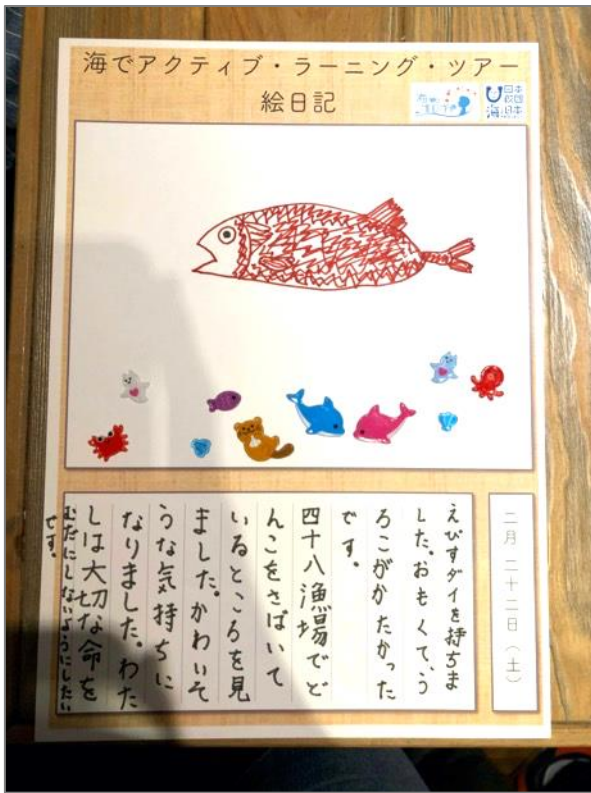 海でアクティブ・ラーニング・ツアー
絵日記
二月二十二日（土）
えびすダイを持ちま
した。おもくて、う
ろこがかたかった
です。
四十八漁場でど
んこをさばいて
いるところを見
ました。かわいそ
うな気持ちに
なりました。わた
しは大切な命を
むだにしないようにしたい
です。